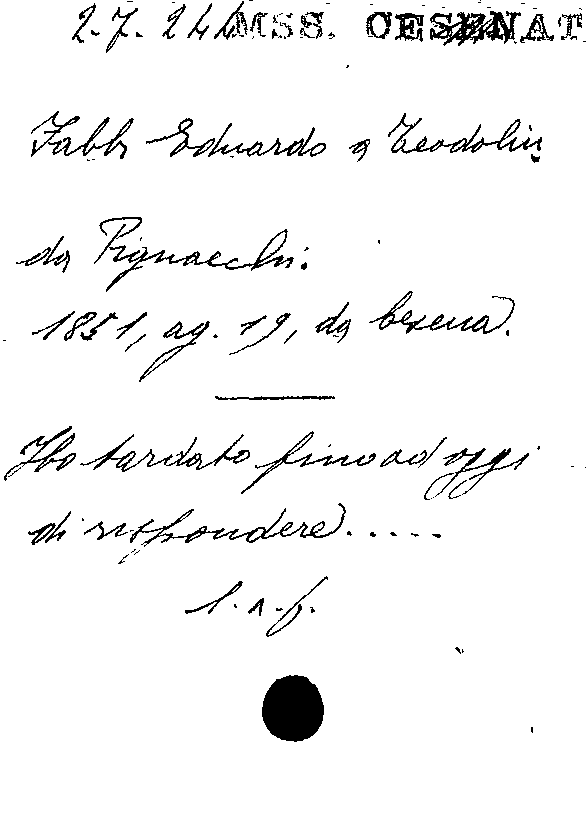 2.7.24 MSS. CESENAT
Fabbri Eduardo a Teodolin
da Pignaecchi.
1851, ag. 19, da Cesena.
Ho tardato fino ad oggi
di rispondere.....
l. a. f.